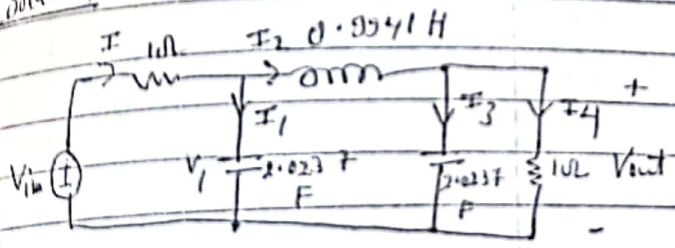 I 1Ω I2 0.9941 H
I1 I3 I4 +
Vin V1 2.0237 2.0237 1Ω Vout
F F -